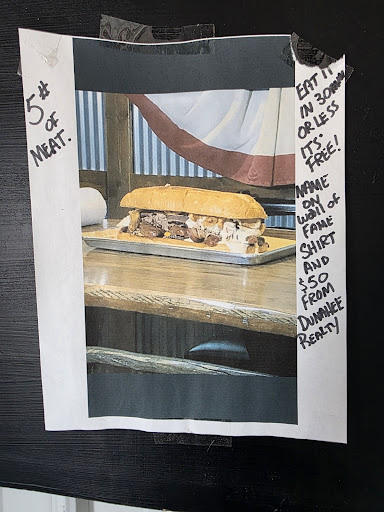 5#
OF
MEAT.
EAT IT
IN 30MIN
OR LESS
ITS
FREE!
NAME
ON
WALL OF
FAME
SHIRT
AND
$50
FROM
DUNAHEE
REALTY